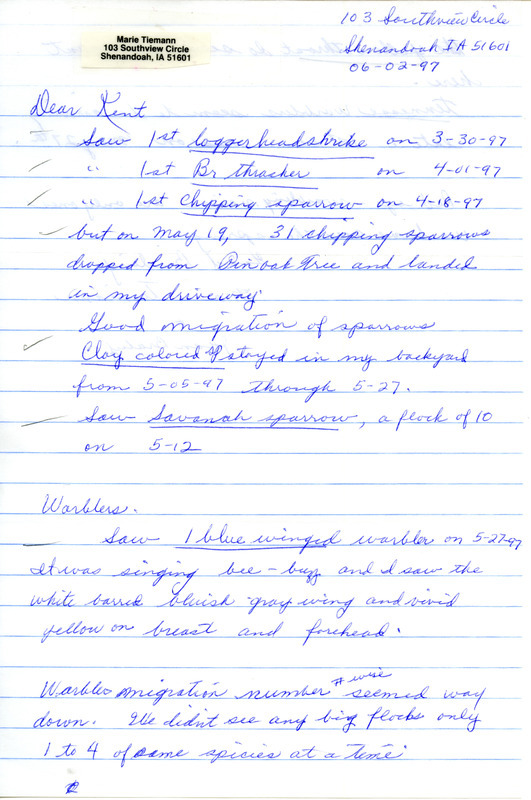 Marie Tiemann
103 Southview Circle
Shenandoah, IA 51601
103 Southview Circle
Shenandoah IA 51601
06-02-97
Dear Kent
Saw 1st loggerheadshrike on 3-30-97
" 1st Br thracher on 4-01-97
" 1st Chipping sparrow on 4-18-97
but on May 19, 31 chipping sparrows
dropped from Pin oak Tree and landed
in my driveway.
Good migration of sparrows
Clay colored sp stayed in my backyard
from 5-05-97 through 5-27.
Saw Savanah sparrow, a flock of 10
on 5-12
Warblers.
Saw 1 blue winged warbler on 5-27-97
It was singing bee-buzz and I saw the
white barred bluish gray wing and vivid
yellow on breast and forehead.
Warbler migration number # wise seemed way
down. We didnt see any big flocks only
1 to 4 of same spicies at a time